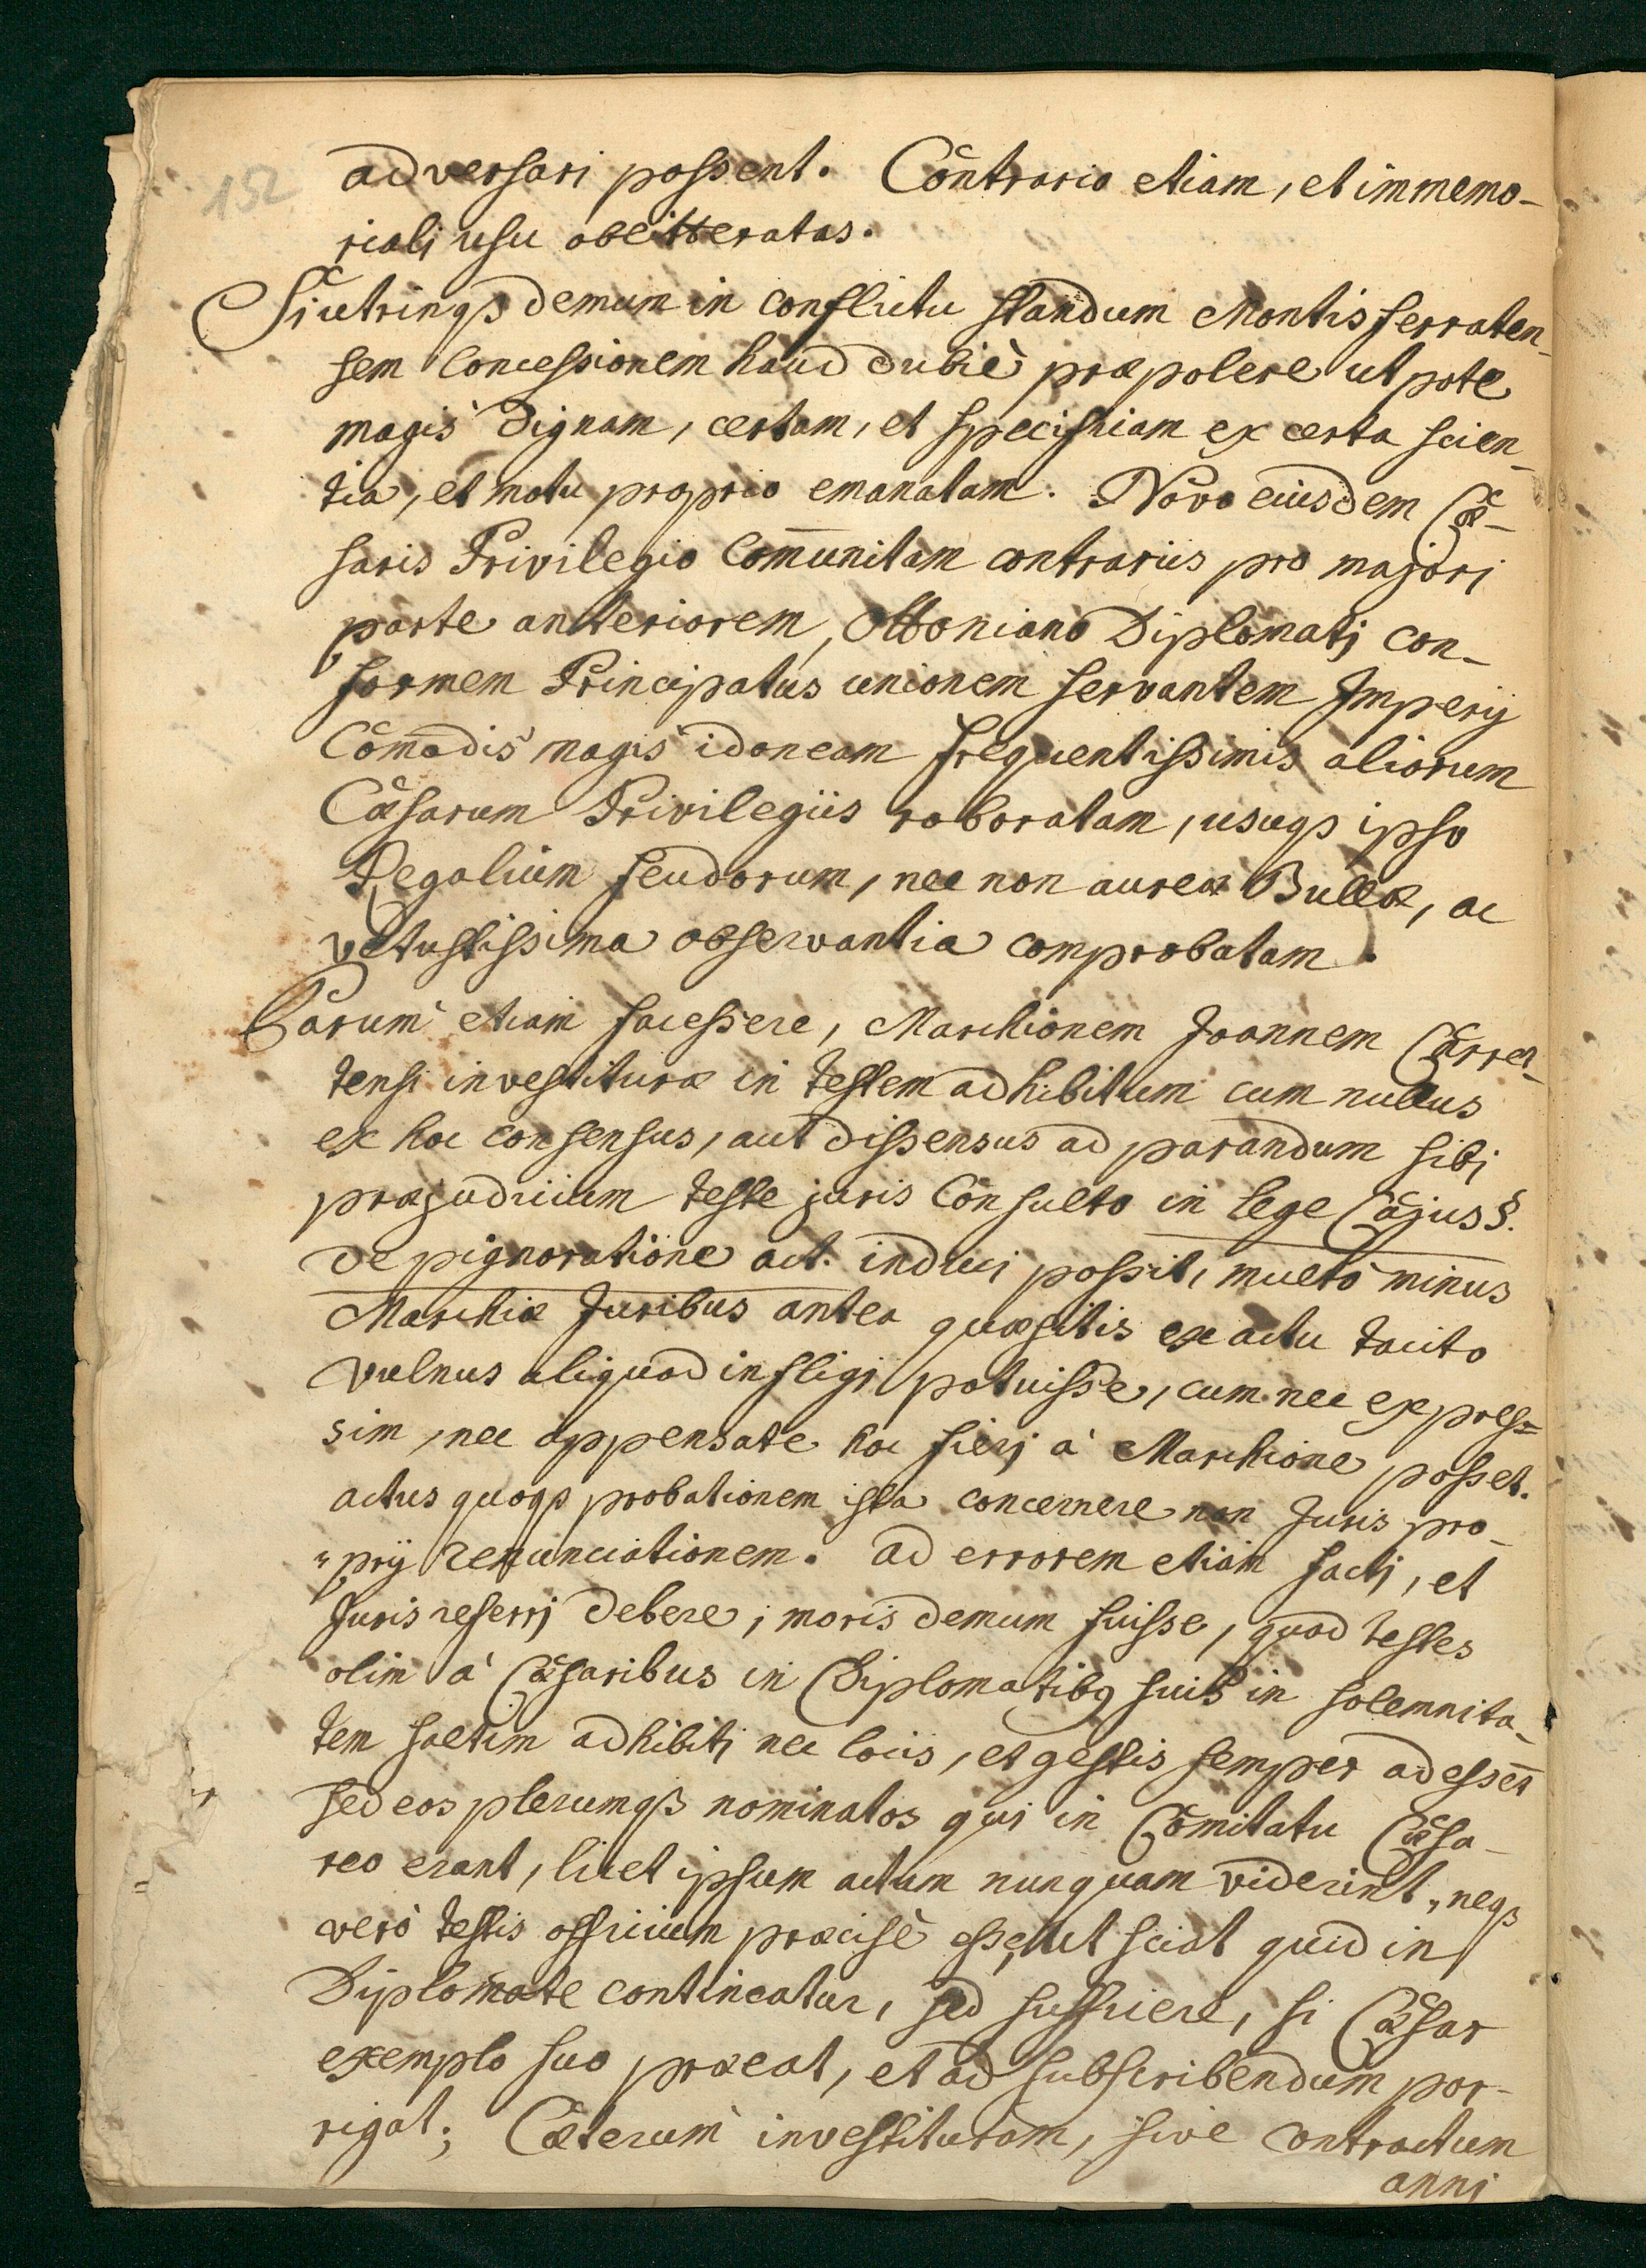 152
adversari possent. Contrario etiam, et immemo-
riali usu obliteratas.
Si utrinqз demum in conflictu standum Montisferraten-
sem Concessionem haud dubiè præpolere ut pote
magis dignam, certam, et specificam ex certa scien-
tia, et motu proprio emanatam. Novo eiusdem Cæ-
saris Privilegio Com̄unitam contrariis pro majori
parte anteriorem, Ottoniano Diplomati con-
formem Principatus unionem servantem Imperij
Comodis magis idoneam frequentissimis aliorum
Cæsarum Privilegiis roboratam, usuqз ipso
Regalium feudorum, nec non aureæ Bullæ, ac
vetustissima observantia comprobatam.
Parum etiam facessere, Marchionem Joannem Carre-
tensi investituræ in testem adhibitum cum nullus
ex hoc consensus, aut dissensus ad parandum sibi
præjudicium teste juris Consulto in lege Cajus §.
de pignoratione act. induci possit, multò minus
Marchiæ Juribus antea quæsitis ex actu tacito
vulnus aliquod infligi potuisse, cum nec expres=
sim, nec appensate hoc fieri à Marchione posset.
actus quoqз probationem ista concernere non Juris pro-
prij renunciationem. ad errorem etiam facti, et
Juris referri debere; moris demum fuisse, quod testes
olim à Cæsaribus in Diplomatibq suis in solemnita-
tem saltim adhibiti nec locis, et gestis semper adessēt
sed eos plerumqз nominatos qui in Comitatu Cæsa-
reo erant, licet ipsum actum nunquam viderint, neqз
verò testis officium præcisè esse, ut sciat quid in
Diplomate contineatur, sed sufficere, si Cæsar
exemplo suo præeat, et ad subscribendum por-
rigat; Cæterum investituram, sive Contractum
anni